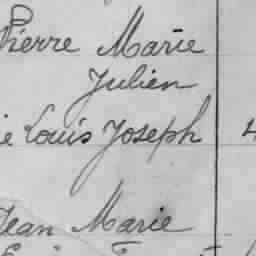 Pierre Marie
Julien
ie Louis Joseph 4
Jean Marie